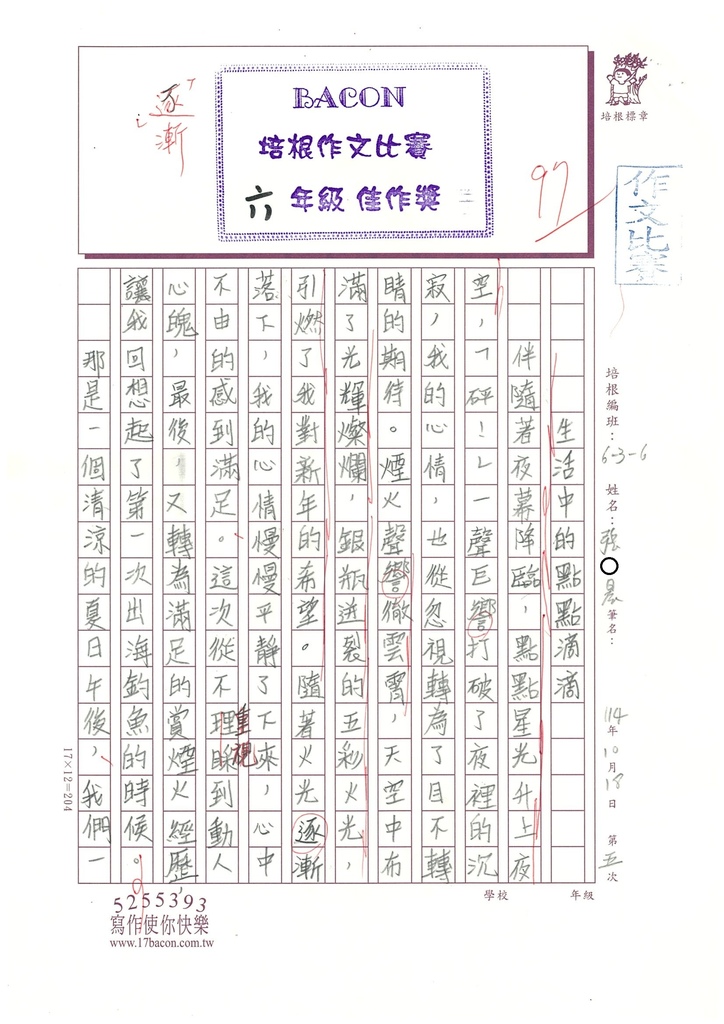 培根標章
作文比賽
BACON
培根作文比賽
六年級 佳作獎
97
逐漸
培根編班：6-3-6 姓名：張○晨 筆名：
114年10月18日 第五次
生活中的點點滴滴
伴隨著夜幕降臨，點點星光升上夜
空，「砰！」一聲巨響打破了夜裡的沉
寂，我的心情，也從忽視轉為了目不轉
睛的期待。煙火聲響徹雲霄，天空中布
滿了光輝燦爛，銀瓶迸裂的五彩火光，
引燃了我對新年的希望。隨著火光逐漸
落下，我的心情慢慢平靜了下來，心中
不由的感到滿足。這次從不理睬到動人
重視
心魄，最後，又轉為滿足的賞煙火經歷，
讓我回想起了第一次出海釣魚的時候。
那是一個清涼的夏日午後，我們一
17×12=204
學校 年級
5255393
寫作使你快樂
www.17bacon.com.tw